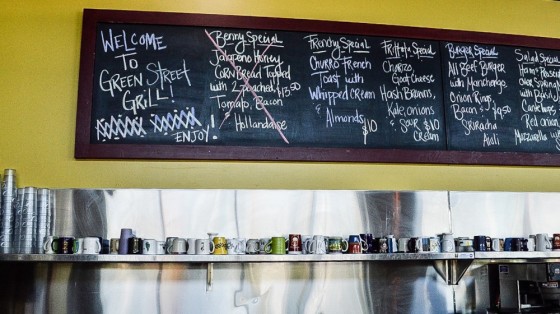 WELCOME
TO
GREEN STREET
GRILL!
ENJOY!
Benny Special
Jalapeno Honey
CornBread Topped
with 2 Poached
Tomato, Bacon
Hollandaise
Frenchy Special
Churro French
Toast with
Whipped Cream
& Almonds $10
Frittata Special
Chorizo,
Goat Cheese
Hash Browns,
Kale, onions
& Sour $10
Cream
Burger Special
All Beef Burger
with Manchego,
Onion Rings,
Bacon &
Sriracha
Aioli
Salad Special
Red onion
Mozzarella